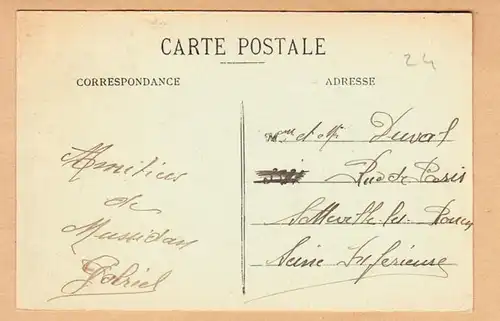 CARTE POSTALE
24
CORRESPONDANCE
ADRESSE
Amitiés
de
Mussidan
Gabriel
Mme et Mr Duval
Rue de Paris
Sotteville-les-Rouen
Seine Inférieure